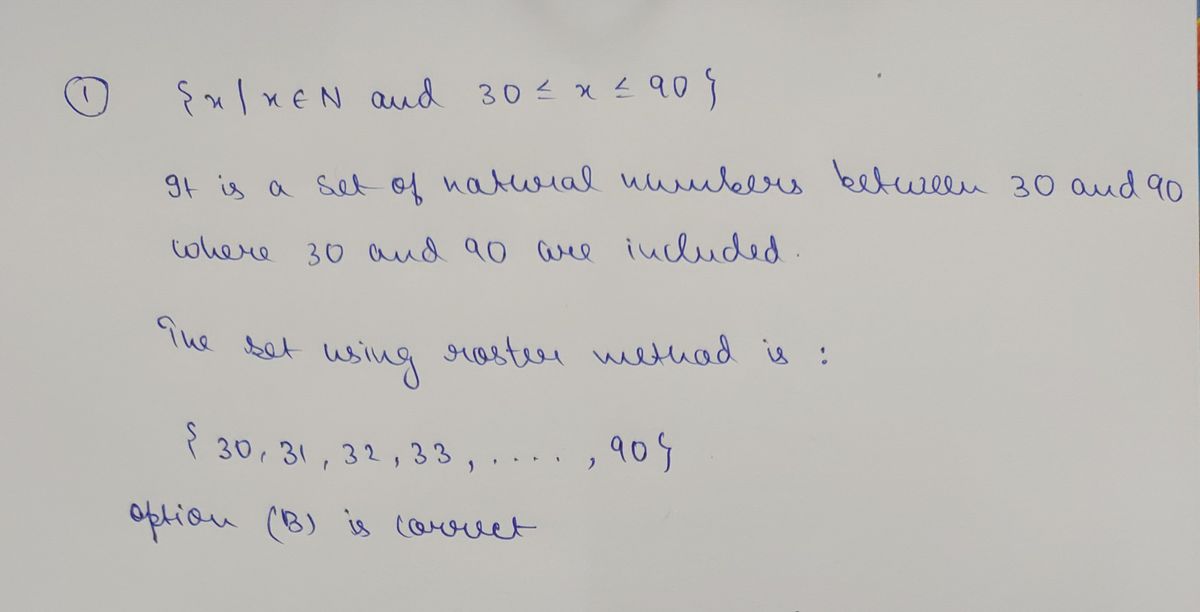 ① {x | x ∈ N and 30 ≤ x ≤ 90}
It is a set of natural numbers between 30 and 90
where 30 and 90 are included.
The set using roster method is :
{ 30, 31, 32, 33, . . . . , 90}
option (B) is correct